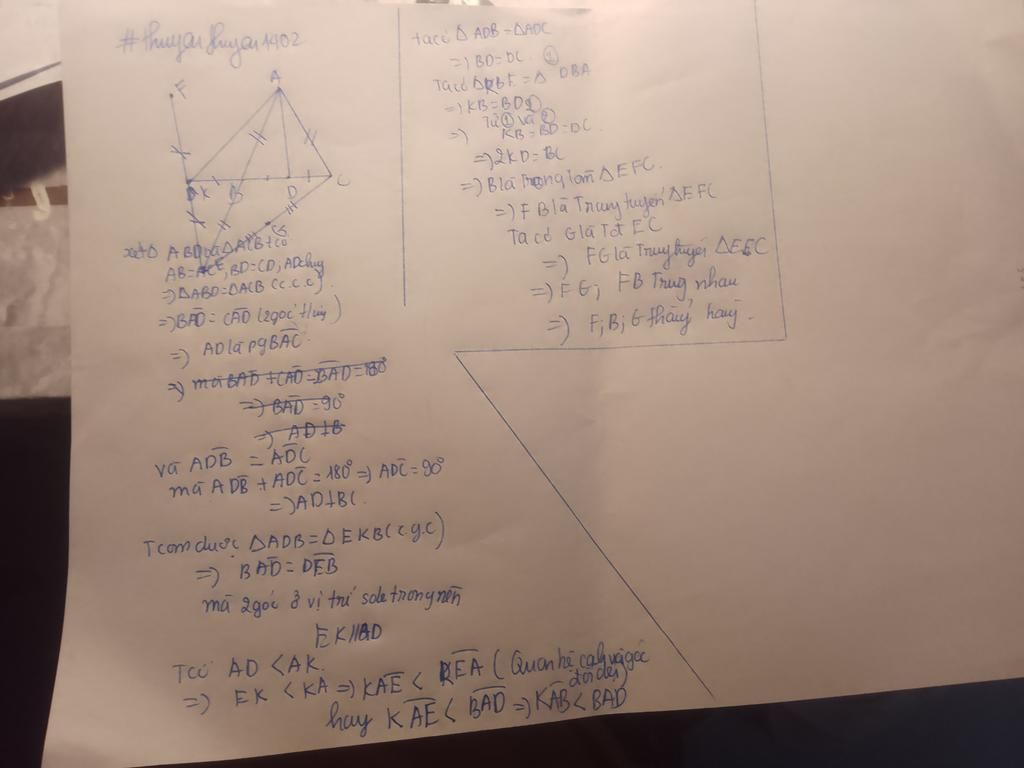 #thuyai thuyai1402
F
A
K
B
D
C
G
E
xét Δ ABD và ΔACB có
AB=AC, BD=CD, AD chung
=) ΔABD=ΔACB (c.c.c)
=) BAD = CAD (2góc t/ứng)
=) AD là pg BAC
=) mà BAD + CAD = BAD = 180°
=) BAD = 90°
=) AD ⊥ B
và ADB = ADC
mà ADB + ADC = 180° =) ADC = 90°
=) AD⊥BC
Tcm được ΔADB = ΔEKB (c.g.c)
=) BAD = DEB
mà 2góc ở vị trí sole trong nên
EK // AD
Tcó AD < AK.
=) EK < KA =) KAE < KEA (Quan hệ cạnh và góc đối diện)
hay KAE < BAD =) KAB < BAD
ta có Δ ADB = ΔADC
=) BD = DC ①
Ta có ΔKBE = Δ DBA
=) KB = BD ②
Từ ① và ②
=) KB = BD = DC
=) 2KD = BC
=) B là Trọng tâm ΔEFC.
=) F B là Trung tuyến ΔEFC
Ta có G là Tđ EC
=) FG là Trung tuyến ΔEFC
=) F G ; FB Trùng nhau
=) F; B; G thẳng hàng.